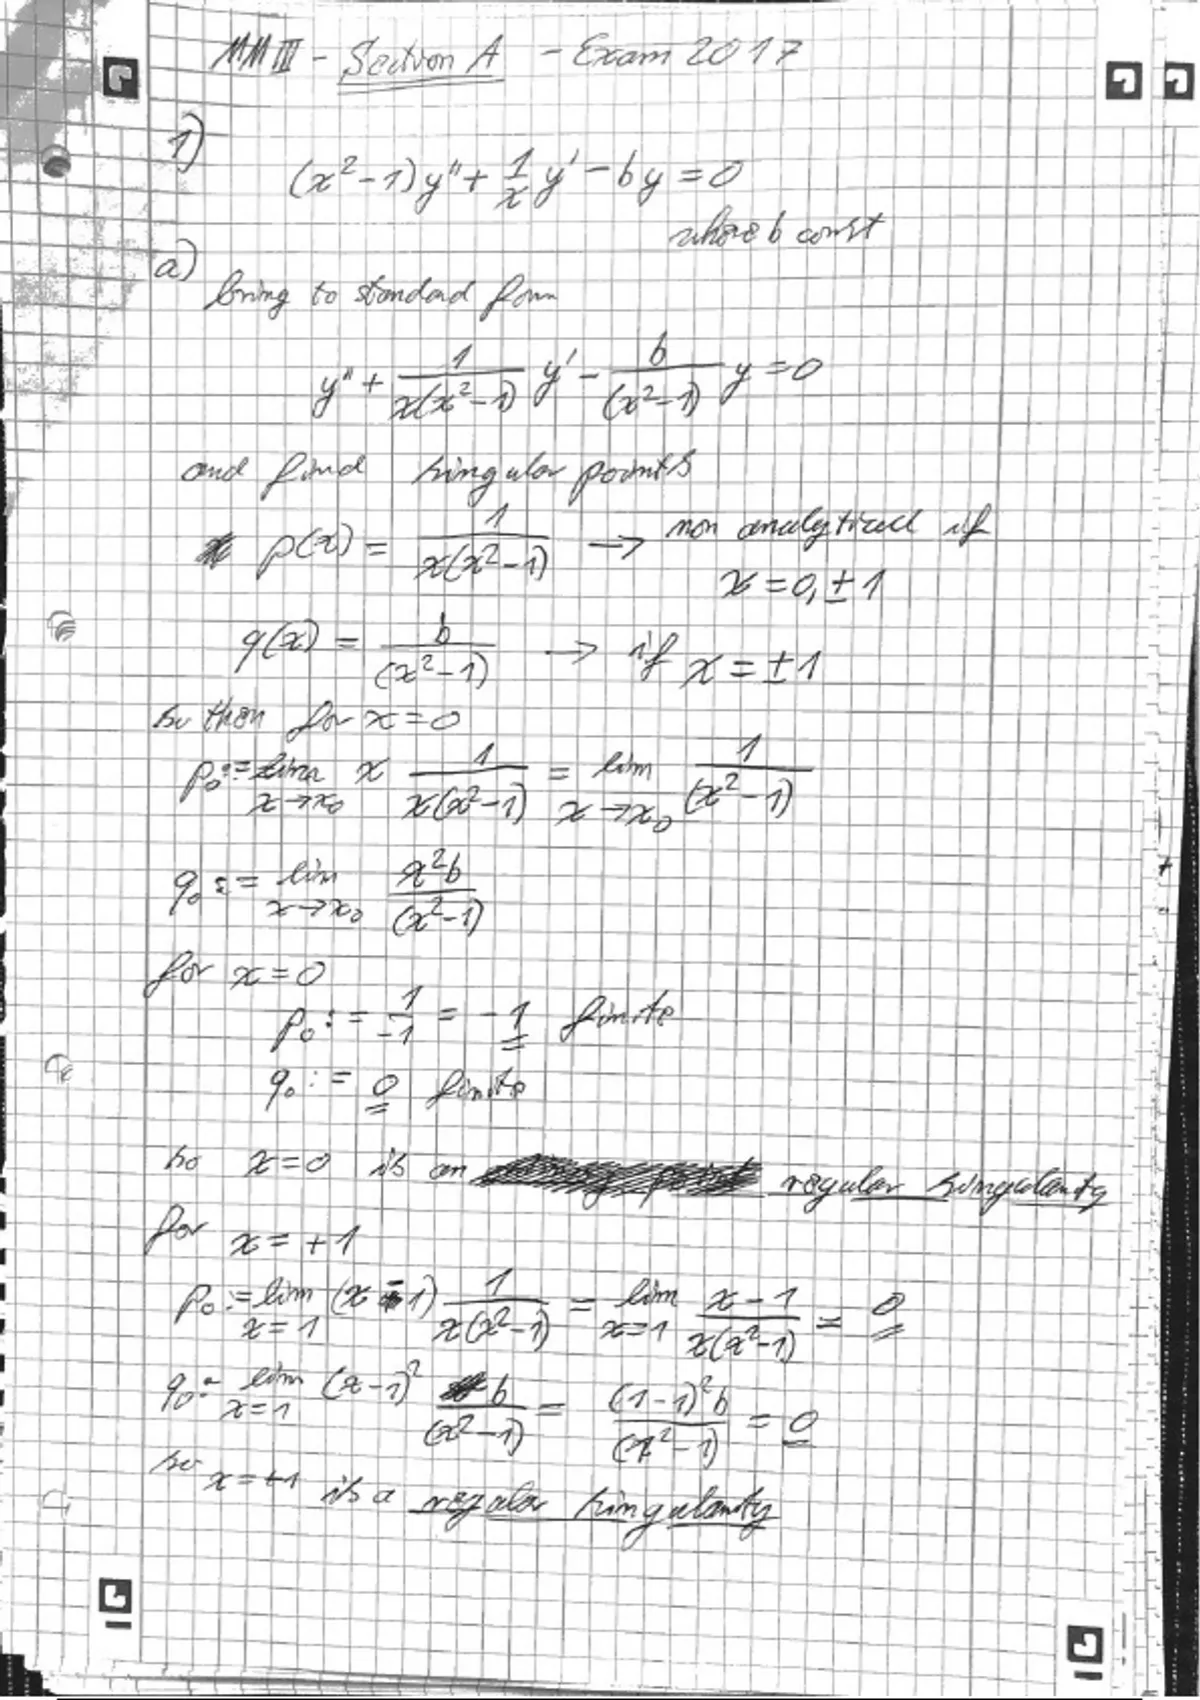 MM III - Section A - Exam 2017
1)
(x²-1)y'' + 1/x y' - by = 0
where b const
a)
bring to standard form
y'' + 1/(x(x²-1)) y' - b/(x²-1) y = 0
and find singular points
p(x) = 1/(x(x²-1)) → non analytical if
x = 0, ±1
q(x) = b/(x²-1) → if x = ±1
so then for x = 0
p₀ := lim x→x₀ x 1/(x(x²-1)) = lim x→x₀ 1/(x²-1)
q₀ := lim x→x₀ x²b/(x²-1)
for x = 0
p₀ := 1/-1 = -1 finite
q₀ := 0 finite
so x=0 is an regular singularity
for x = +1
p₀ := lim x=1 (x-1) 1/(x(x²-1)) = lim x=1 x-1/(x(x²-1)) = 0
q₀ = lim x=1 (x-1)² b/(x²-1) = (1-1)²b/(x²-1) = 0
so x=+1 is a regular singularity